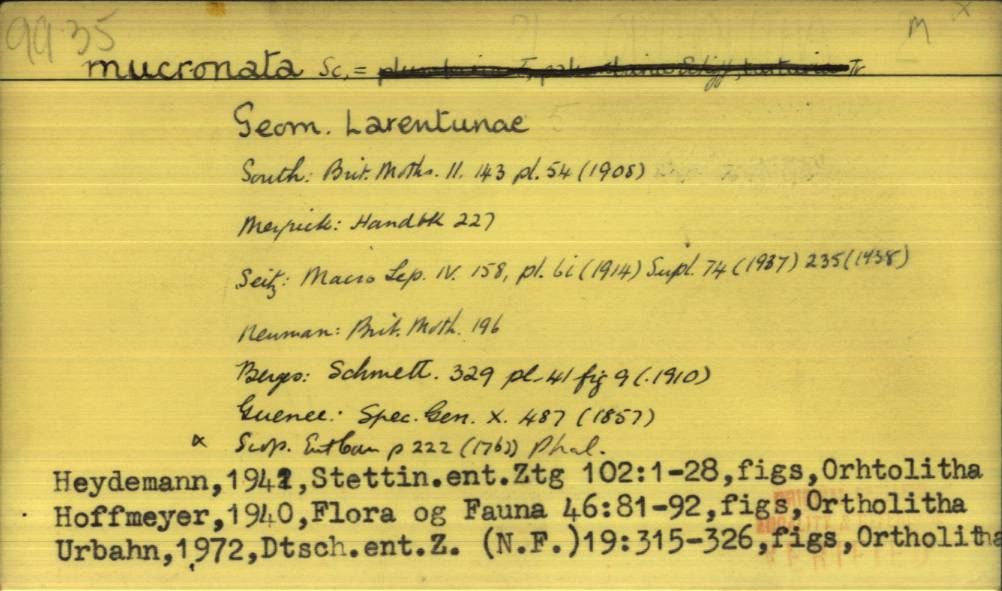 9935 M x
mucronata Sc, = Tr
Geom. Larentunae 5
South: Brit. Moths. II. 143 pl. 54 (1908)
Meyrick: Handbk 227
Seitz: Macro Lep. IV. 158, pl. 6i (1914) Supl. 74 (1937) 235 (1938)
Newman: Brit. Moth. 196
Berges: Schmett. 329 pl. 41 fig 9 (1910)
Guenee: Spec. Gen. X. 487 (1857)
x Scop. Ent Carn p 222 (1763) Phal.
Heydemann,1941,Stettin.ent.Ztg 102:1-28,figs,Orhtolitha
Hoffmeyer,1940,Flora og Fauna 46:81-92,figs,Ortholitha
Urbahn,1972,Dtsch.ent.Z. (N.F.)19:315-326,figs,Ortholitha